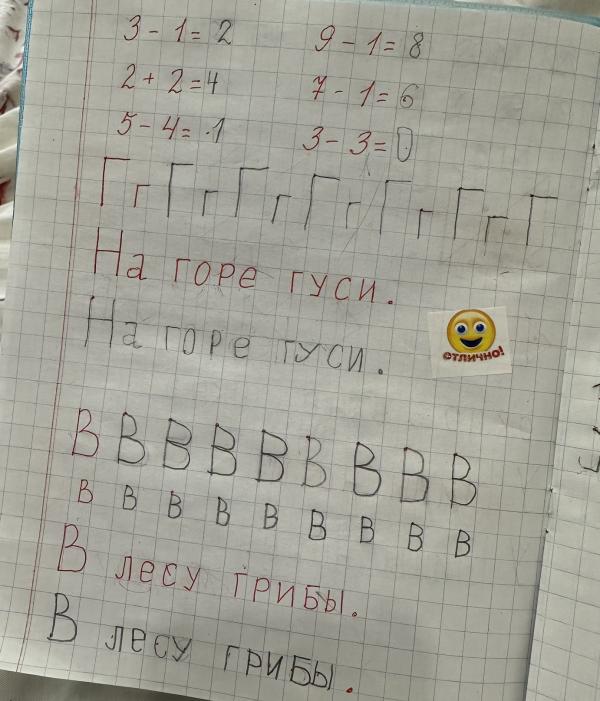 3 - 1 = 2 9 - 1 = 8
2 + 2 = 4 7 - 1 = 6
5 - 4 = 1 3 - 3 = 0
Г г Г г Г г Г г Г г Г г Г
На горе гуси.
На горе гуси.
ОТЛИЧНО!
В В В В В В В В В
в в в в в в в в в
В лесу грибы.
В лесу грибы.